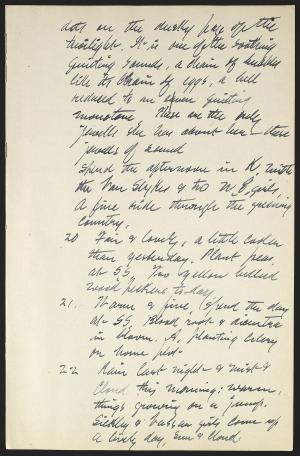 dots on the dusky page of the
twilight. It is one of the soothing
quieting sounds, a chain of bubbles
like its chain of eggs, a bell
reduced to an even, quieting
monotone. These are the only
jewells she has about her — these
jewells of sound
Spend the afternoon in K, with
the Van Slykes & two N. Y. girls.
A fine ride through the greening
country.
20 Fair & lovely, a little cooler
than yesterday. Plant peas
at SS. Two yellow bellied
wood peckers to-day
21. Warm & fine, Spend the day
at SS, Blood root & dicentra
in bloom. A, planting celery
on home plot.
22 Rain last night & mist &
Cloud this morning; warm,
things growing on a jump.
Vassar girls come up
A lovely day, Sun & Cloud.